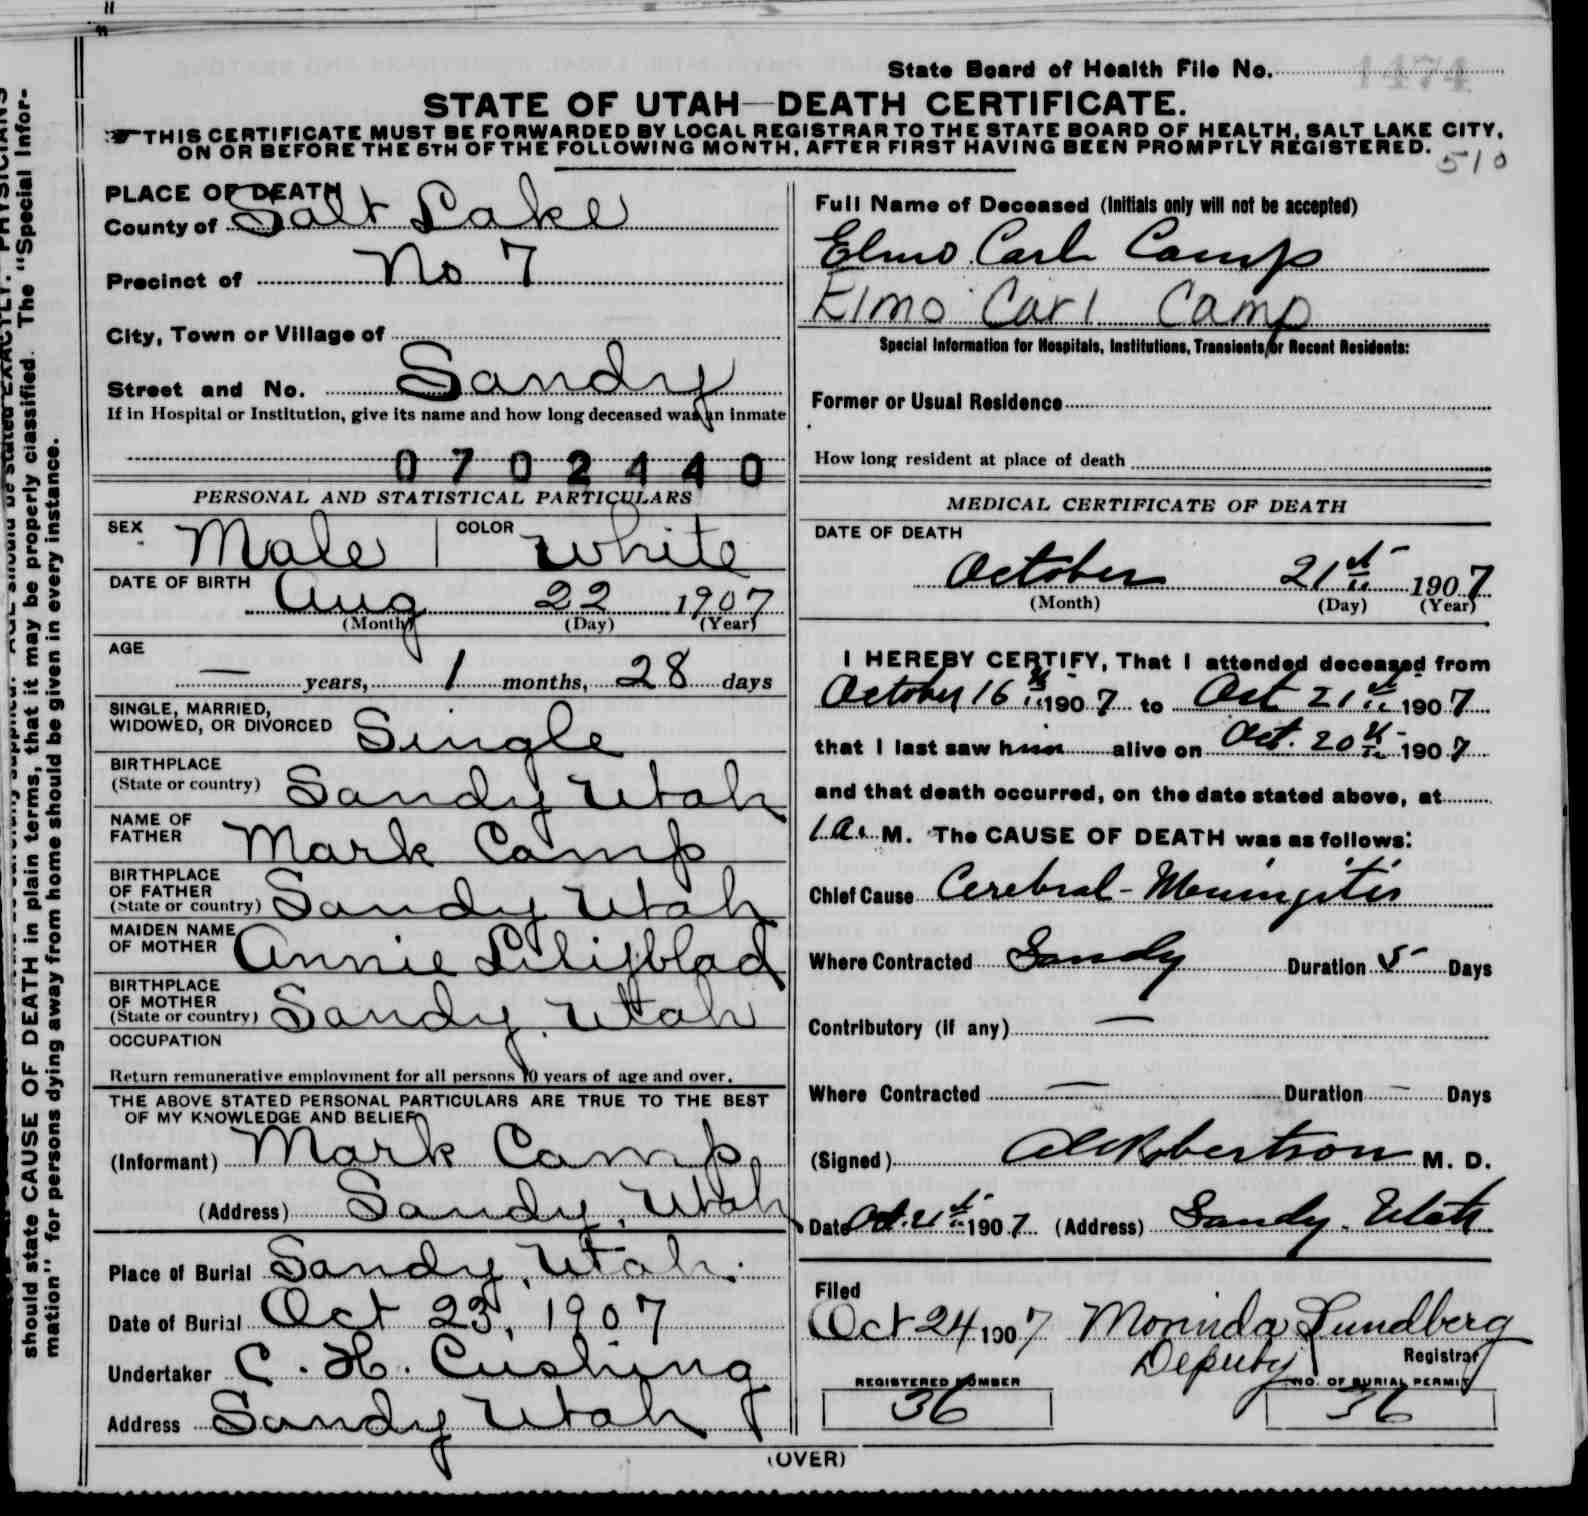 should state CAUSE OF DEATH in plain terms, that it may be properly classified. The "Special Infor-
mation" for persons dying away from home should be given in every instance.
State Board of Health File No. 1474
STATE OF UTAH—DEATH CERTIFICATE.
THIS CERTIFICATE MUST BE FORWARDED BY LOCAL REGISTRAR TO THE STATE BOARD OF HEALTH, SALT LAKE CITY,
ON OR BEFORE THE 5TH OF THE FOLLOWING MONTH, AFTER FIRST HAVING BEEN PROMPTLY REGISTERED.
510
PLACE OF DEATH
County of Salt Lake
Precinct of No 7
City, Town or Village of
Street and No. Sandy
If in Hospital or Institution, give its name and how long deceased was an inmate
0702440
PERSONAL AND STATISTICAL PARTICULARS
SEX Male COLOR White
DATE OF BIRTH Aug 22 1907
(Month) (Day) (Year)
AGE
— years, 1 months, 28 days
SINGLE, MARRIED,
WIDOWED, OR DIVORCED Single
BIRTHPLACE
(State or country) Sandy Utah
NAME OF
FATHER Mark Camp
BIRTHPLACE
OF FATHER
(State or country) Sandy Utah
MAIDEN NAME
OF MOTHER Annie Lilijblad
BIRTHPLACE
OF MOTHER
(State or country) Sandy, Utah
OCCUPATION
Return remunerative employment for all persons 10 years of age and over.
THE ABOVE STATED PERSONAL PARTICULARS ARE TRUE TO THE BEST
OF MY KNOWLEDGE AND BELIEF
(Informant) Mark Camp
(Address) Sandy, Utah
Place of Burial Sandy, Utah.
Date of Burial Oct 23, 1907
Undertaker C. H. Cushing
Address Sandy Utah
Full Name of Deceased (Initials only will not be accepted)
Elmo Carl Camp
Elmo Carl Camp
Special Information for Hospitals, Institutions, Transients, or Recent Residents:
Former or Usual Residence
How long resident at place of death
MEDICAL CERTIFICATE OF DEATH
DATE OF DEATH
October 21st 1907
(Month) (Day) (Year)
I HEREBY CERTIFY, That I attended deceased from
October 16th 1907 to Oct 21st 1907
that I last saw him alive on Oct. 20th 1907
and that death occurred, on the date stated above, at
1 a. M. The CAUSE OF DEATH was as follows:
Chief Cause Cerebral-Meningitis
Where Contracted Sandy Duration 5 Days
Contributory (if any) —
Where Contracted — Duration — Days
(Signed) Robertson M. D.
Date Oct. 21st 1907 (Address) Sandy. Utah
Filed
Oct 24 1907 Morinda Lundberg
Deputy Registrar
REGISTERED NUMBER
36
NO. OF BURIAL PERMIT
36
(OVER)